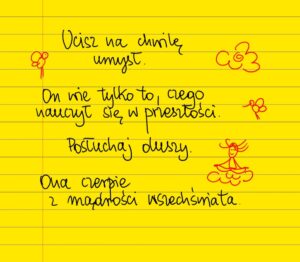 Ucisz na chwilę
umysł.
On wie tylko to, czego
nauczył się w przeszłości.
Posłuchaj duszy.
Ona czerpie
z mądrości wszechświata.